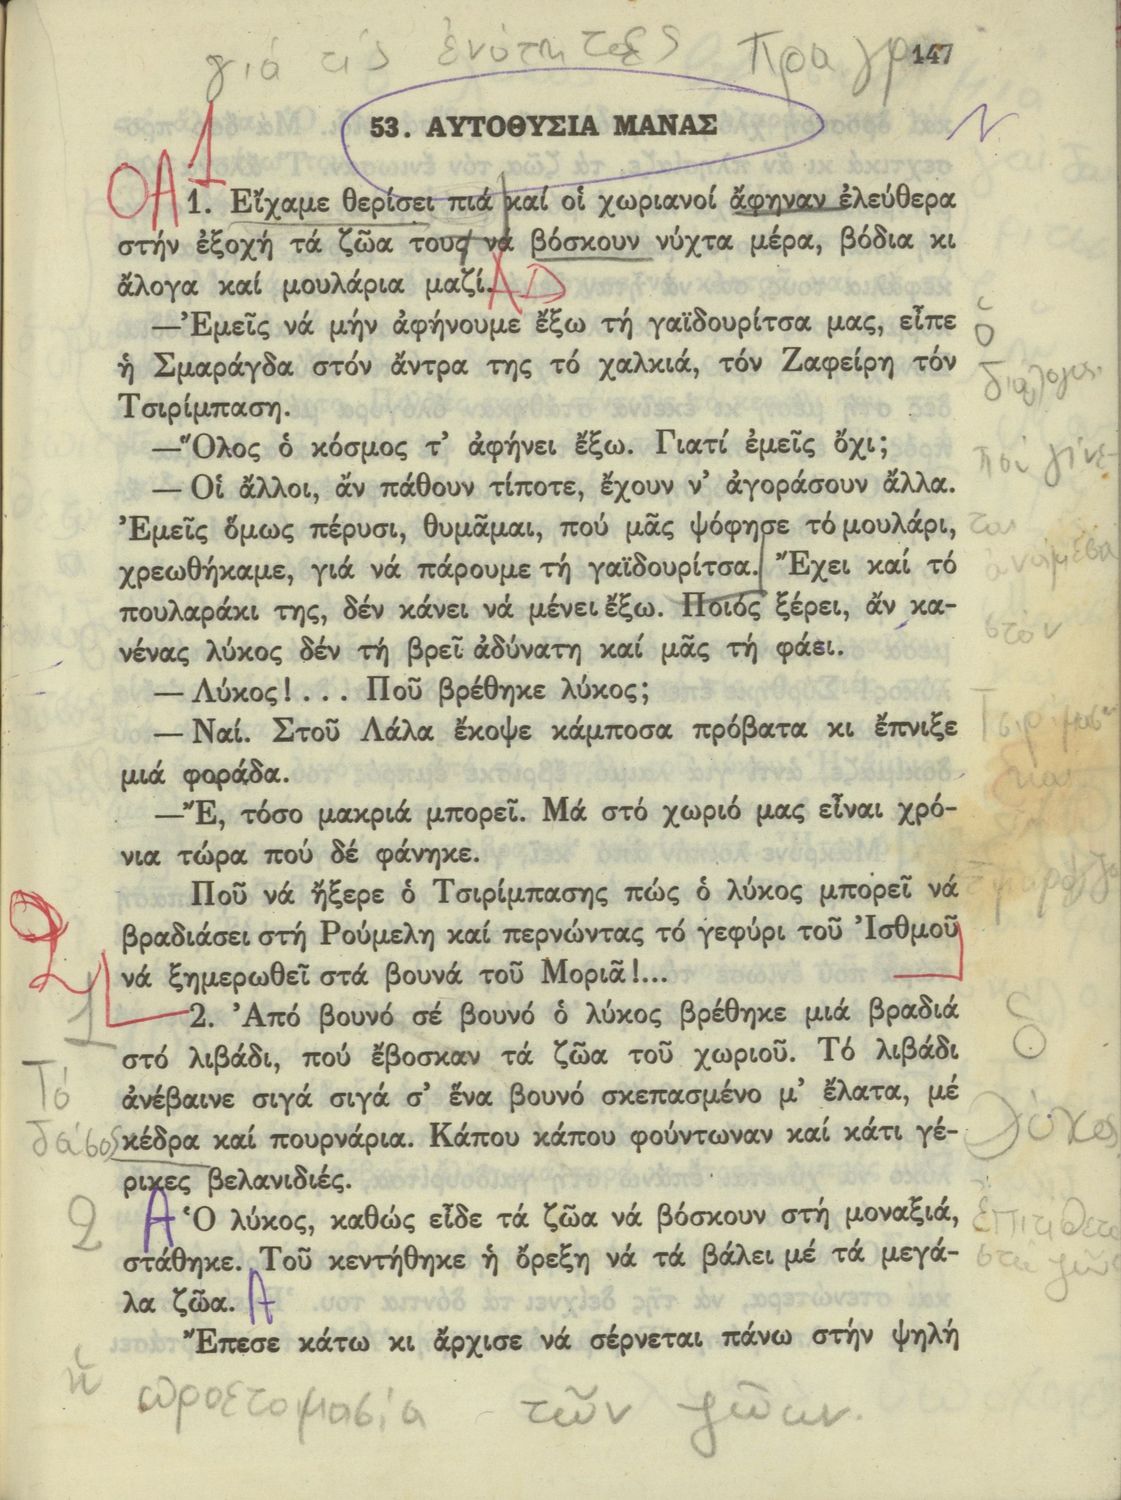 γιά τίς ἑνότητες
147
53. ΑΥΤΟΘΥΣΙΑ ΜΑΝΑΣ
ΟΑ 1
1. Εἴχαμε θερίσει πιά καί οἱ χωριανοί ἄφηναν ἐλεύθερα
στήν ἐξοχή τά ζῶα τους νά βόσκουν νύχτα μέρα, βόδια κι
ἄλογα καί μουλάρια μαζί.
—Ἐμεῖς νά μήν ἀφήνουμε ἔξω τή γαϊδουρίτσα μας, εἶπε
ἡ Σμαράγδα στόν ἄντρα της τό χαλκιά, τόν Ζαφείρη τόν
Τσιρίμπαση.
—Ὅλος ὁ κόσμος τ' ἀφήνει ἔξω. Γιατί ἐμεῖς ὄχι;
— Οἱ ἄλλοι, ἄν πάθουν τίποτε, ἔχουν ν' ἀγοράσουν ἄλλα.
Ἐμεῖς ὅμως πέρυσι, θυμᾶμαι, πού μᾶς ψόφησε τό μουλάρι,
χρεωθήκαμε, γιά νά πάρουμε τή γαϊδουρίτσα. Ἔχει καί τό
πουλαράκι της, δέν κάνει νά μένει ἔξω. Ποιός ξέρει, ἄν κα-
νένας λύκος δέν τή βρεῖ ἀδύνατη καί μᾶς τή φάει.
— Λύκος!... Ποῦ βρέθηκε λύκος;
— Ναί. Στοῦ Λάλα ἔκοψε κάμποσα πρόβατα κι ἔπνιξε
μιά φοράδα.
—Ἔ, τόσο μακριά μπορεῖ. Μά στό χωριό μας εἶναι χρό-
νια τώρα πού δέ φάνηκε.
Ποῦ νά ἤξερε ὁ Τσιρίμπασης πώς ὁ λύκος μπορεῖ νά
βραδιάσει στή Ρούμελη καί περνώντας τό γεφύρι τοῦ Ἰσθμοῦ
νά ξημερωθεῖ στά βουνά τοῦ Μοριᾶ!...
2. Ἀπό βουνό σέ βουνό ὁ λύκος βρέθηκε μιά βραδιά
στό λιβάδι, πού ἔβοσκαν τά ζῶα τοῦ χωριοῦ. Τό λιβάδι
ἀνέβαινε σιγά σιγά σ' ἕνα βουνό σκεπασμένο μ' ἔλατα, μέ
κέδρα καί πουρνάρια. Κάπου κάπου φούντωναν καί κάτι γέ-
ρικες βελανιδιές.
Ὁ λύκος, καθώς εἶδε τά ζῶα νά βόσκουν στή μοναξιά,
στάθηκε. Τοῦ κεντήθηκε ἡ ὄρεξη νά τά βάλει μέ τά μεγά-
λα ζῶα.
Ἔπεσε κάτω κι ἄρχισε νά σέρνεται πάνω στήν ψηλή
ὁ
διάλογος
πού γίνε-
ται
ἀνάμεσα
στόν
2
1
Τό
δάσος
2
ὁ
λύκος
ἐπιτίθεται
στά ζῶα
ἡ προετοιμασία τῶν ζώων.